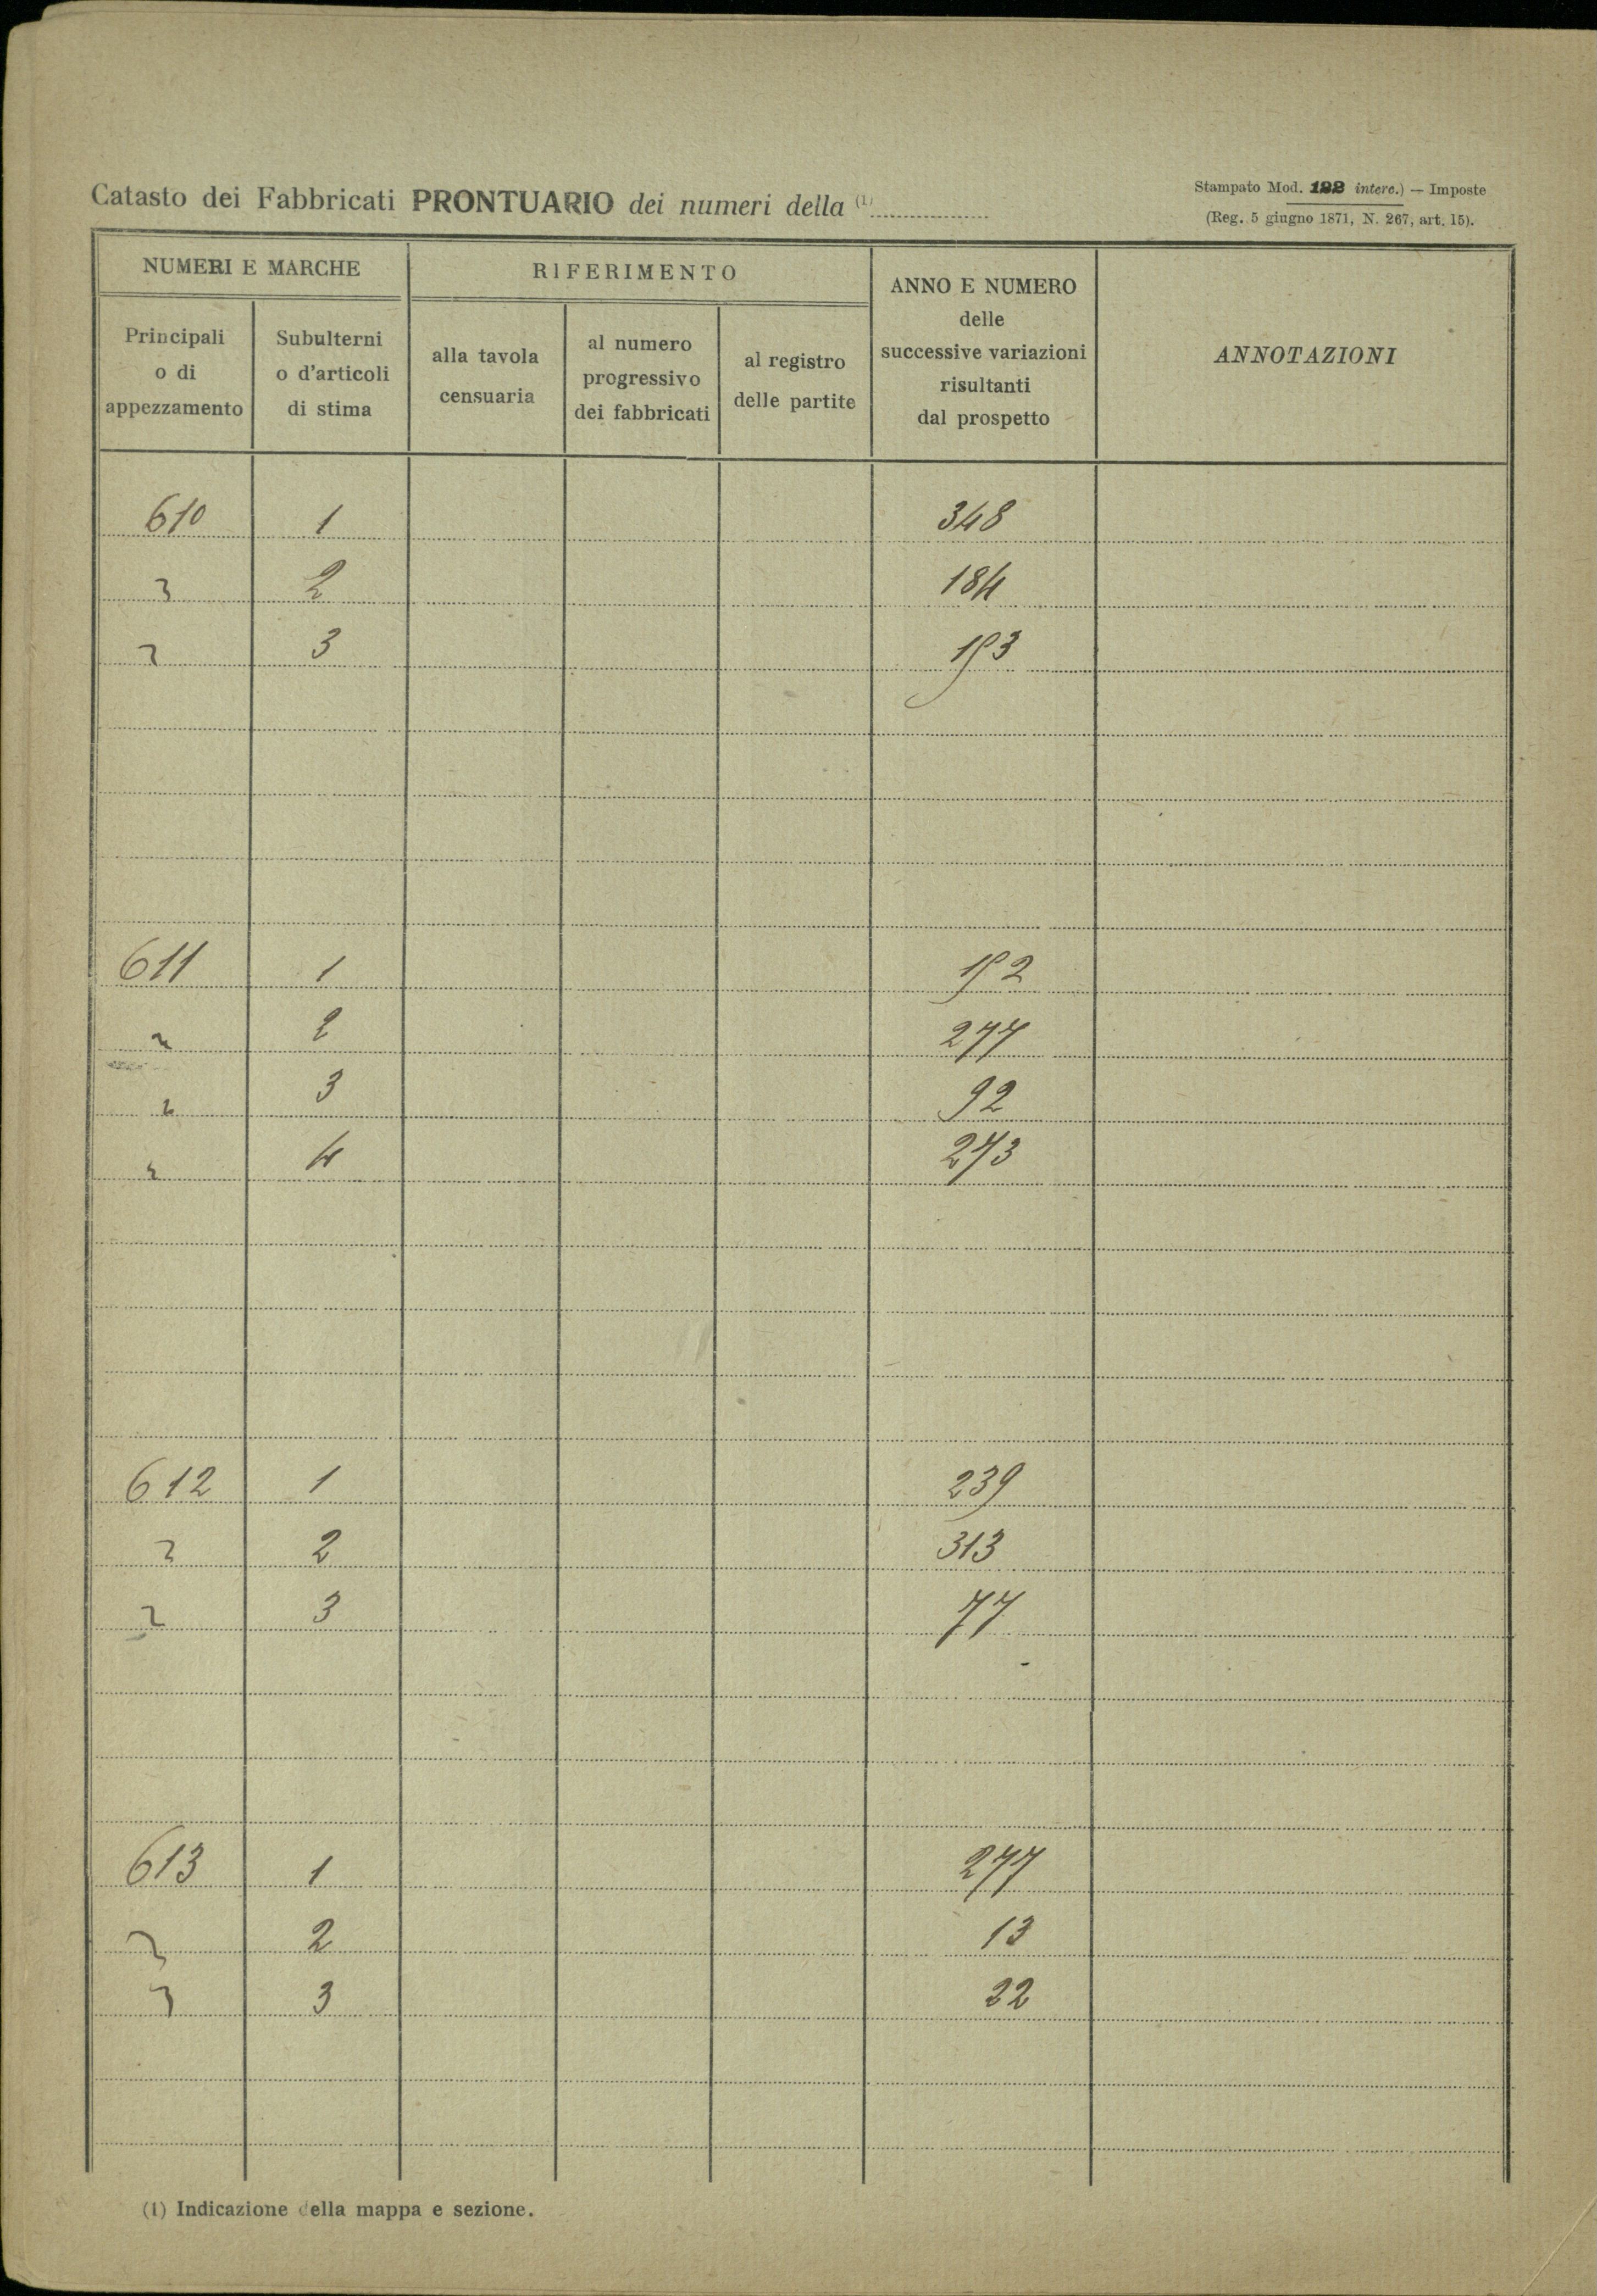 Catasto dei Fabbricati PRONTUARIO dei numeri della (1)
Stampato Mod. 122 interc.) — Imposte
(Reg. 5 giugno 1871, N. 267, art. 15).
NUMERI E MARCHE
RIFERIMENTO
ANNO E NUMERO
delle
successive variazioni
risultanti
dal prospetto
ANNOTAZIONI
Principali
o di
appezzamento
Subulterni
o d'articoli
di stima
alla tavola
censuaria
al numero
progressivo
dei fabbricati
al registro
delle partite
610 1 348
" 2 184
" 3 193
611 1 192
" 2 277
" 3 92
" 4 273
612 1 239
" 2 313
" 3 77
613 1 277
" 2 13
" 3 22
(1) Indicazione della mappa e sezione.